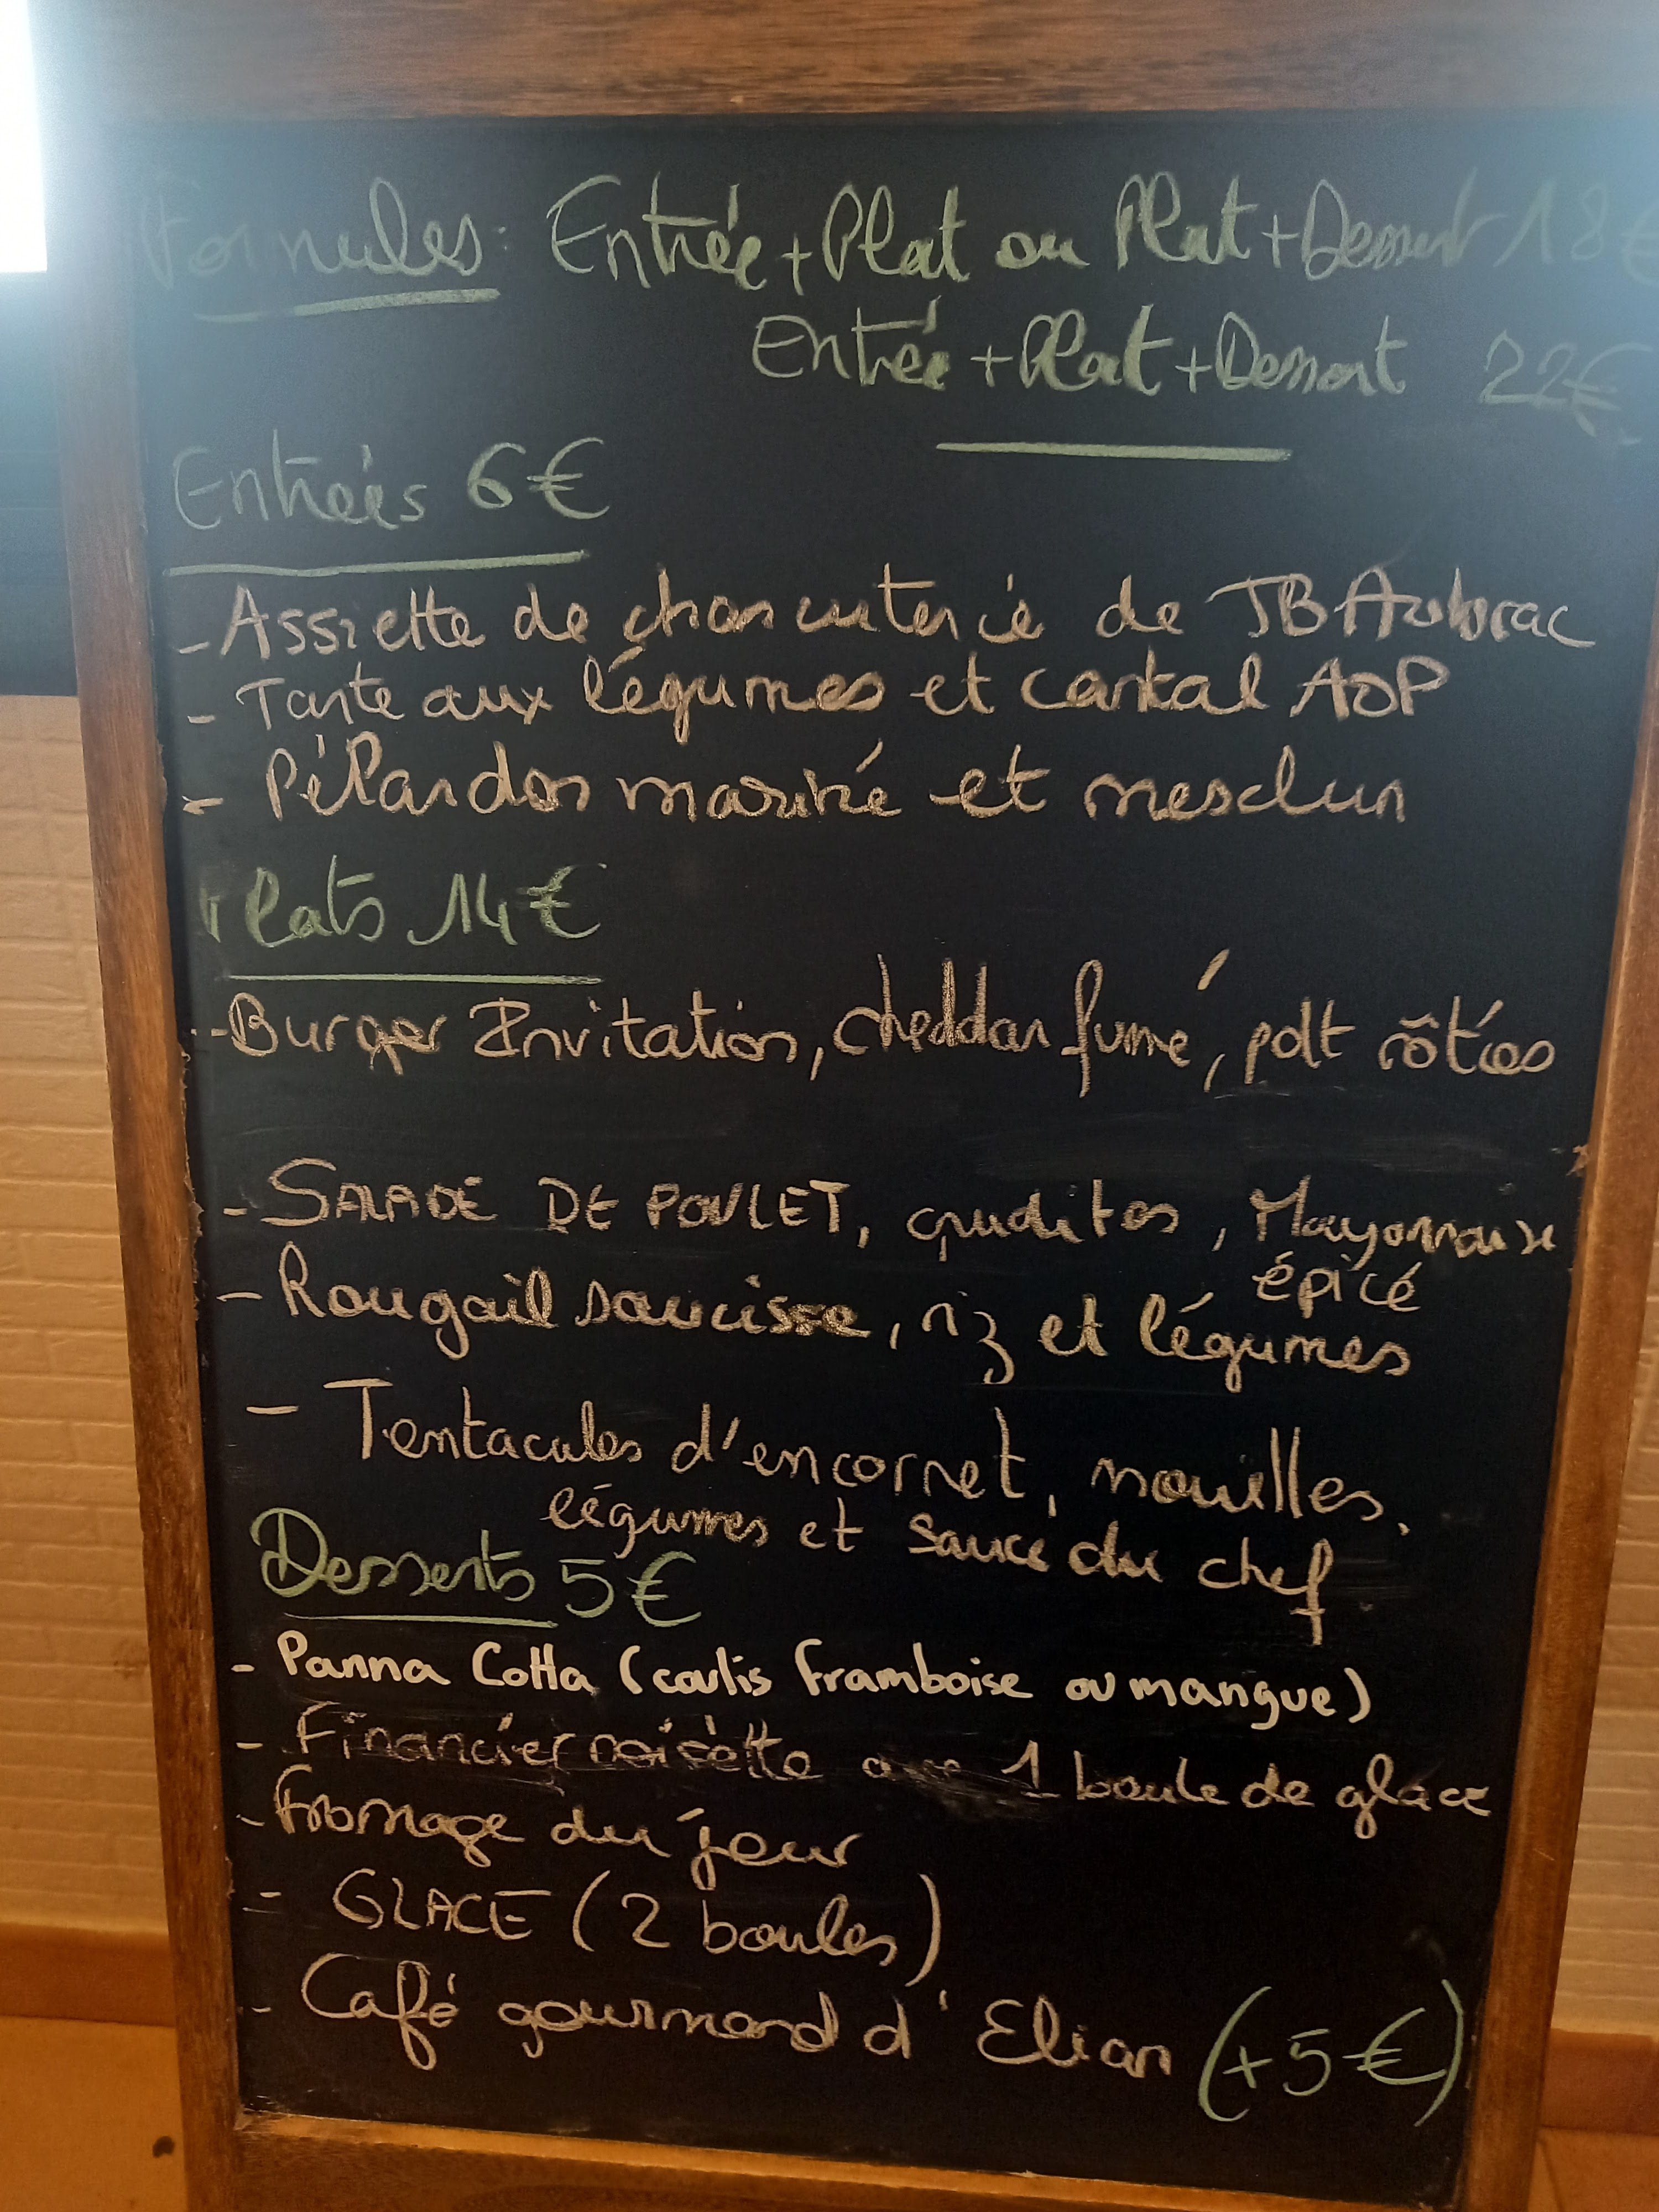 Formules: Entrée+Plat ou Plat+Dessert 18€
Entrée+Plat+Dessert 22€
Entrées 6€
- Assiette de charcuterie de JB Aubrac
- Tarte aux légumes et cantal AOP
- Pélardon mariné et mesclun
Plats 14€
- Burger Invitation, cheddar fumé, pdt rôties
- SALADE DE POULET, crudités, Mayonnaise
épicé
- Rougail saucisse, riz et légumes
- Tentacules d'encornet, nouilles,
légumes et sauce du chef
Desserts 5€
- Panna Cotta (coulis framboise ou mangue)
- Financier noisette 1 boule de glace
- Fromage du jour
- GLACE (2 boules)
- Café gourmand d'Elian (+5€)